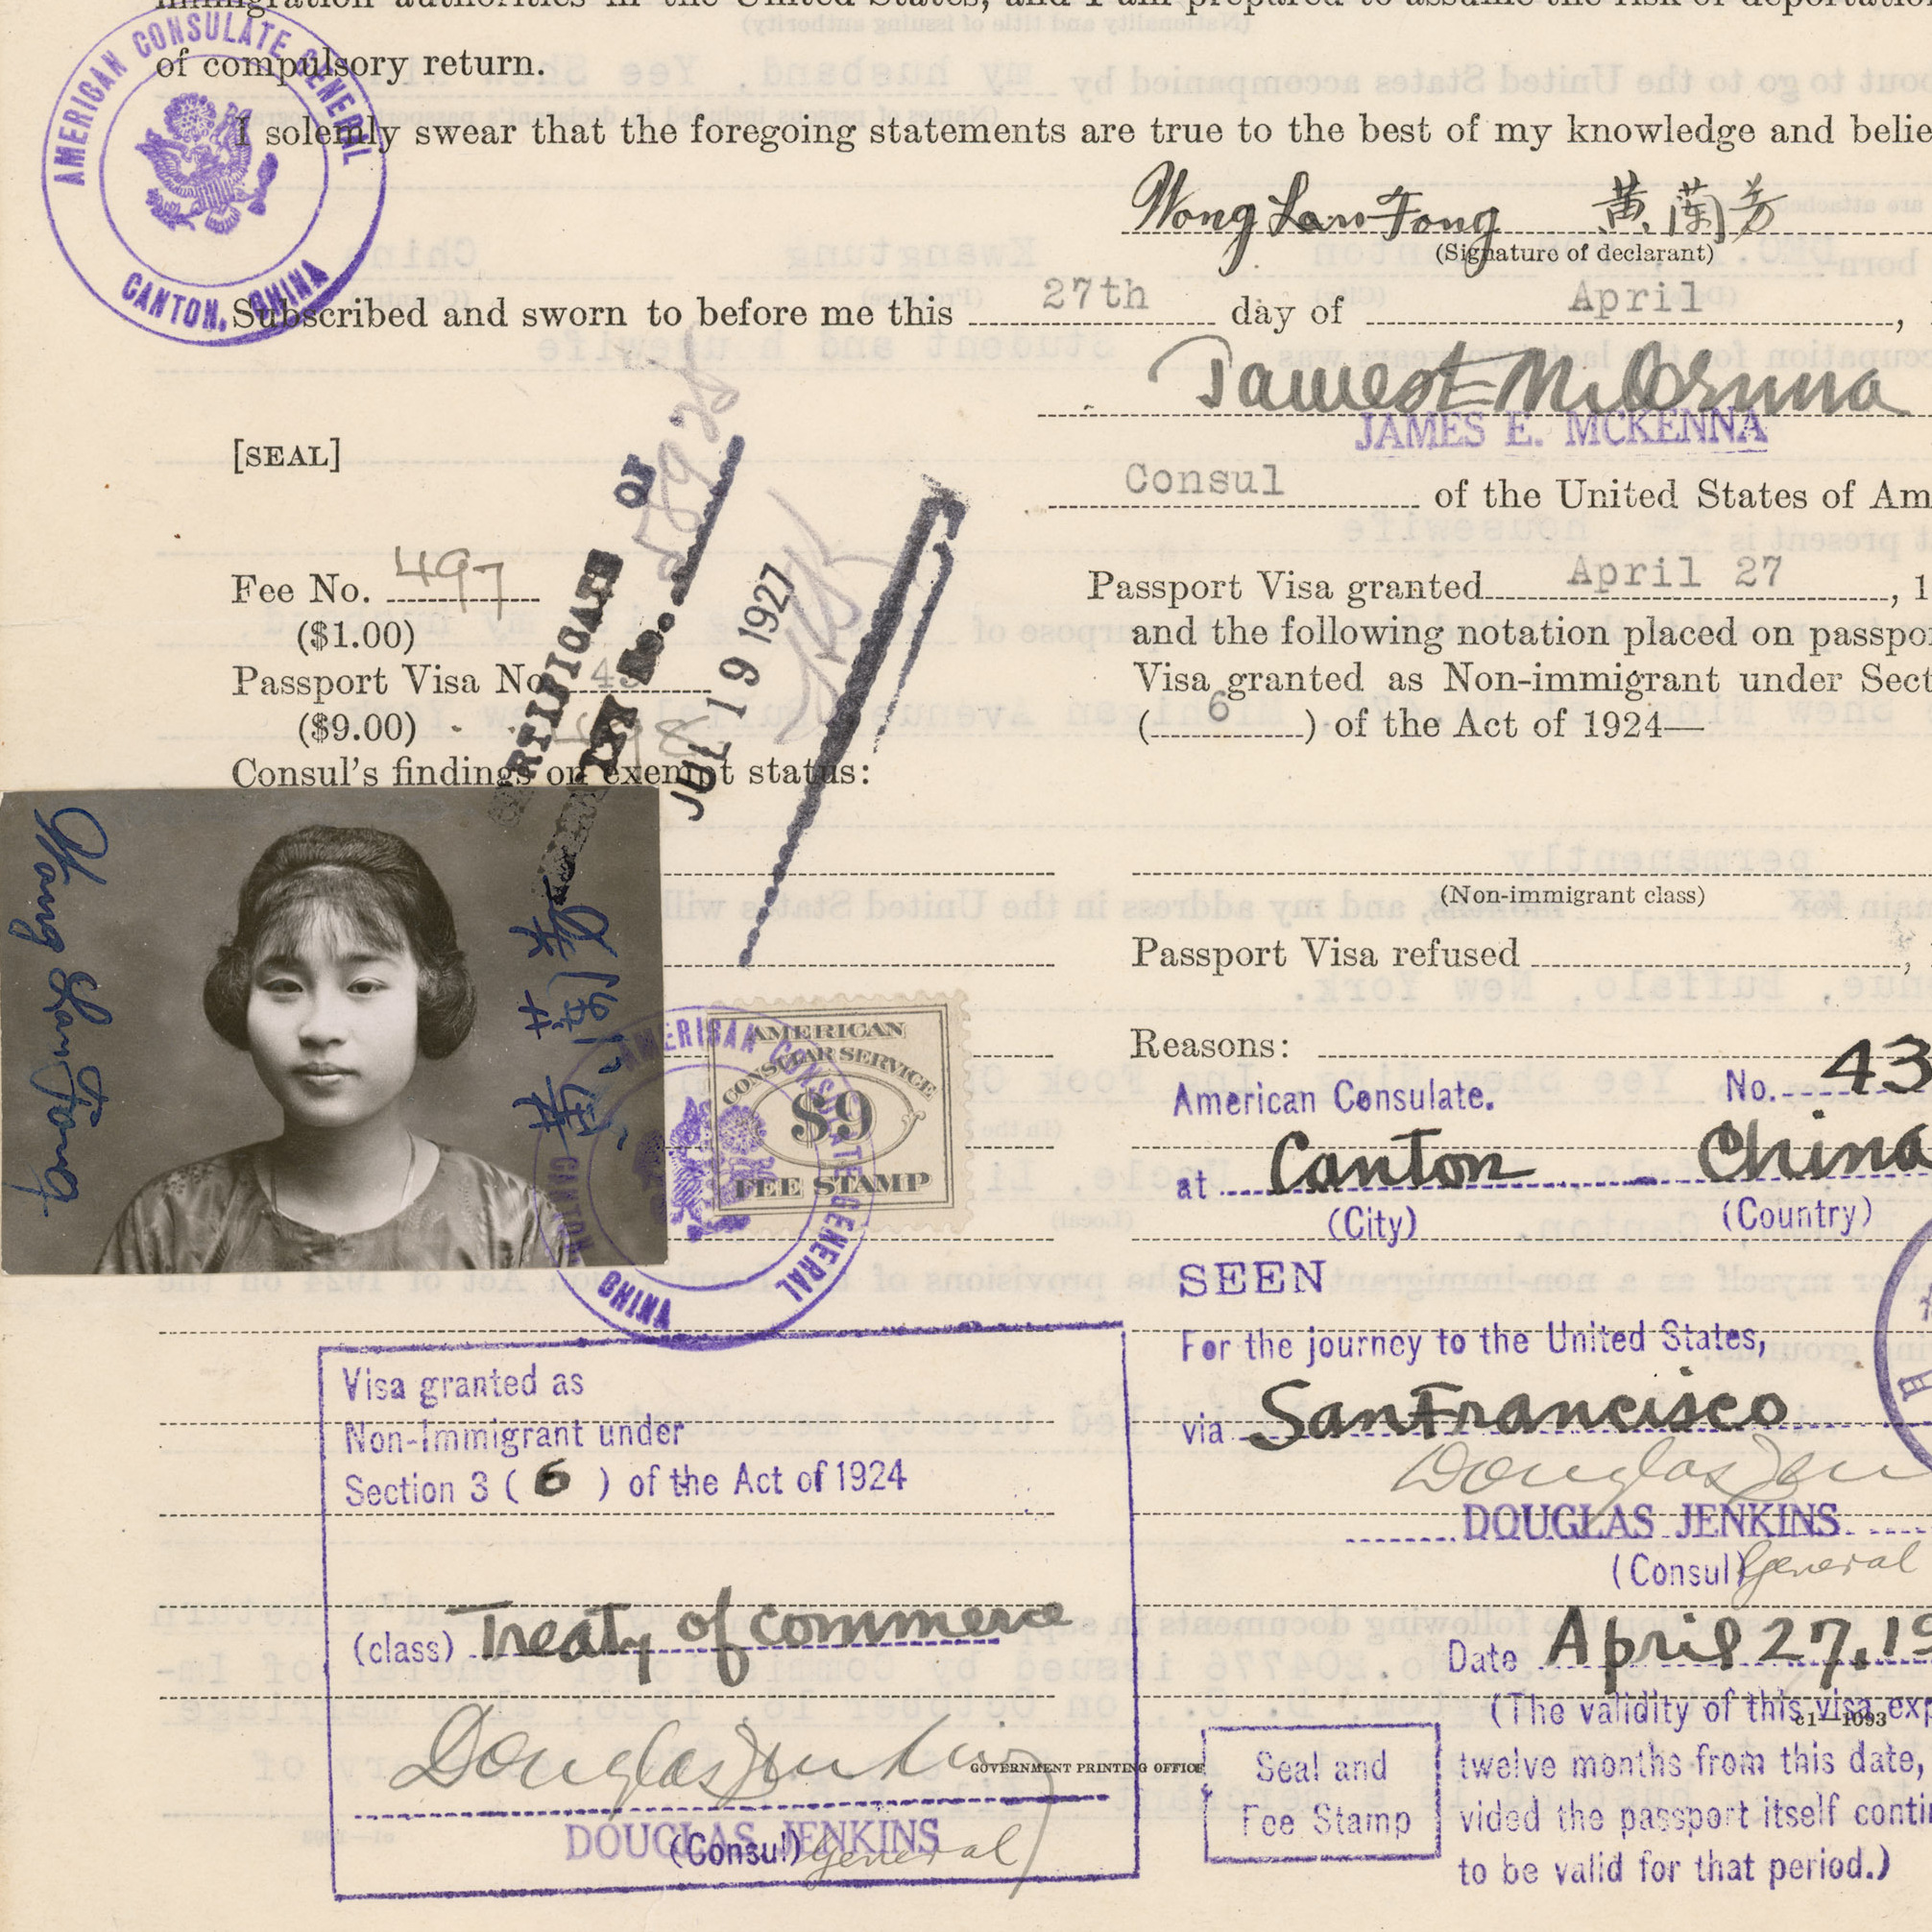 immigration authorities in the United States, and I am prepared to assume the risk of deportation
of compulsory return.
AMERICAN CONSULATE GENERAL
CANTON, CHINA
I solemnly swear that the foregoing statements are true to the best of my knowledge and belie
Wong Lan Fong 黄蘭芳
(Signature of declarant)
Subscribed and sworn to before me this 27th day of April,
James E McKenna
JAMES E. MCKENNA
[SEAL]
Consul of the United States of Am
Fee No. 497
($1.00)
Passport Visa No. 43
($9.00) 498
Consul's findings on exempt status:
CERTIFICATE OF
No.
JUL 19 1927
Passport Visa granted April 27, 1
and the following notation placed on passpo
Visa granted as Non-immigrant under Sect
(6) of the Act of 1924—
(Non-immigrant class)
Passport Visa refused,
Reasons:
Wong Lan Fong
AMERICAN CONSULATE GENERAL
CANTON, CHINA
AMERICAN
CONSULAR SERVICE
$9
FEE STAMP
American Consulate. No. 43
at Canton China
(City) (Country)
SEEN
For the journey to the United States,
via San Francisco
Douglas Jen
DOUGLAS JENKINS
(Consul) General
Date April 27, 19
(The validity of this visa exp
c1—1093
twelve months from this date,
vided the passport itself contin
to be valid for that period.)
Seal and
Fee Stamp
Visa granted as
Non-Immigrant under
Section 3 ( 6 ) of the Act of 1924
(class) Treaty of commerce
Douglas Jenkins
GOVERNMENT PRINTING OFFICE
DOUGLAS JENKINS
(Consul) General